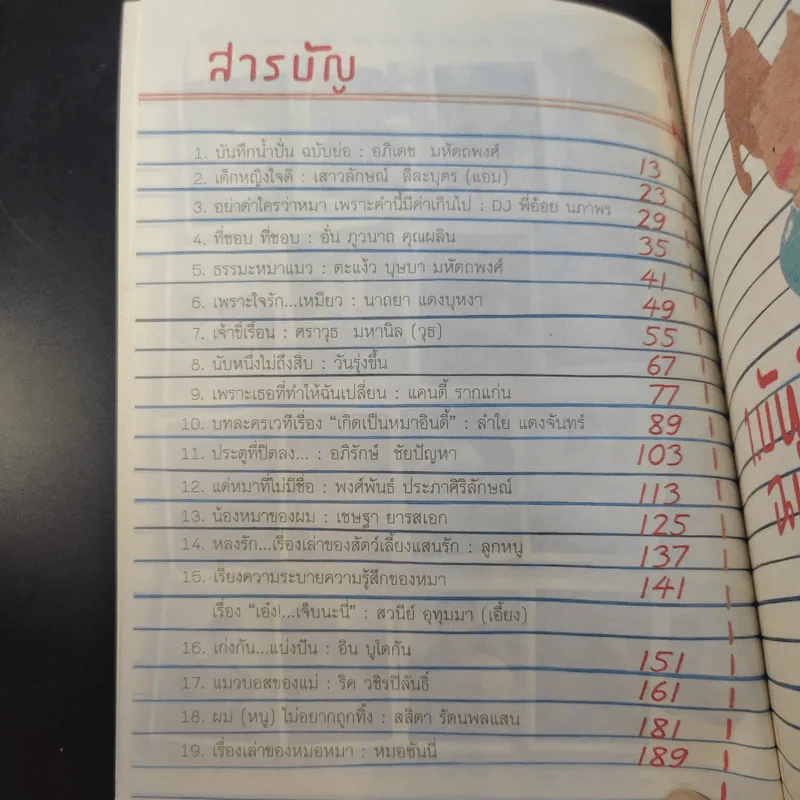 สารบัญ
1. บันทึกน้ำปั่น ฉบับย่อ : อภิเดช มหัตถพงศ์ 13
2. เด็กหญิงใจดี : เสาวลักษณ์ ลีละบุตร (แอม) 23
3. อย่าด่าใครว่าหมา เพราะคำนี้มีค่าเกินไป : DJ พี่อ้อย นภาพร 29
4. ที่ชอบ ที่ชอบ : อั๋น ภูวนาถ คุณผลิน 35
5. ธรรมะหมาแมว : ตะแง้ว บุษบา มหัตถพงศ์ 41
6. เพราะใจรัก...เหมียว : นาถยา แดงบุหงา 49
7. เจ้าขี้เรื้อน : ศราวุธ มหานิล (วุธ) 55
8. นับหนึ่งไม่ถึงสิบ : วันรุ่งขึ้น 67
9. เพราะเธอที่ทำให้ฉันเปลี่ยน : แคนดี้ รากแก่น 77
10. บทละครเวทีเรื่อง “เกิดเป็นหมาอินดี้” : ลำใย แดงจันทร์ 89
11. ประตูที่ปิดลง... : อภิรักษ์ ชัยปัญหา 103
12. แด่หมาที่ไม่มีชื่อ : พงศ์พันธ์ ประภาศิริลักษณ์ 113
13. น้องหมาของผม : เชษฐา ยารสเอก 125
14. หลงรัก...เรื่องเล่าของสัตว์เลี้ยงแสนรัก : ลูกหนู 137
15. เรียงความระบายความรู้สึกของหมา 141
เรื่อง “เอ๋ง!...เจ็บนะนี่” : สวนีย์ อุทุมมา (เอี้ยง)
16. เก่งกัน...แบ่งปัน : อิน บูโดกัน 151
17. แมวบอสของแม่ : ริค วชิรปิลันธิ์ 161
18. ผม (หนู) ไม่อยากถูกทิ้ง : สลิตา รัตนพลแสน 181
19. เรื่องเล่าของหมอหมา : หมอซันนี่ 189